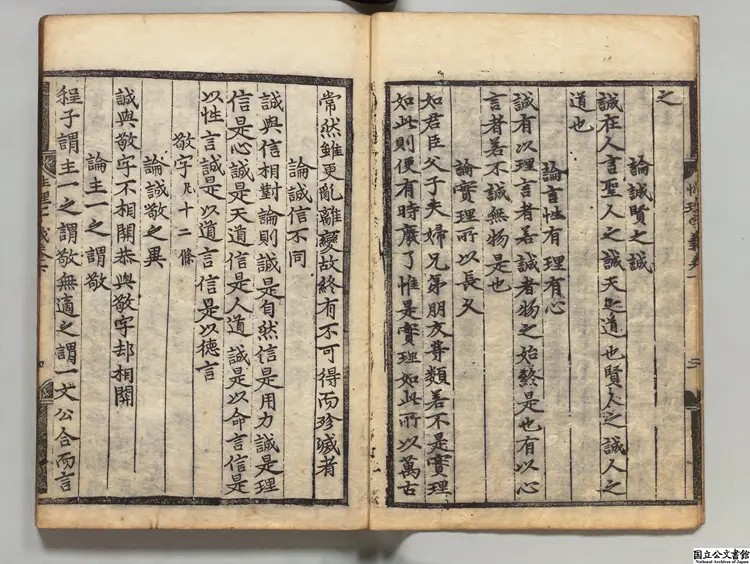 之
論誠賢之誠
誠在人言聖人之誠天之道也賢人之誠人之
道也
論言性有理有心
誠有以理言者若誠者物之始終是也有以心
言者若不誠無物是也
論實理所以長久
如君臣父子夫婦兄弟朋友等類若不是實理
如此則便有時廢了惟是實理如此所以萬古
常然雖更亂離變故終有不可得而殄滅者
論誠信不同
誠與信相對論則誠是自然信是用力誠是理
信是心誠是天道信是人道誠是以命言信是
以性言誠是以道言信是以德言
敬字凡十二條
論誠敬之異
誠與敬字不相關恭與敬字却相關
論主一之謂敬
程子謂主一之謂敬無適之謂一文公合而言
国立公文書館
National Archives of Japan